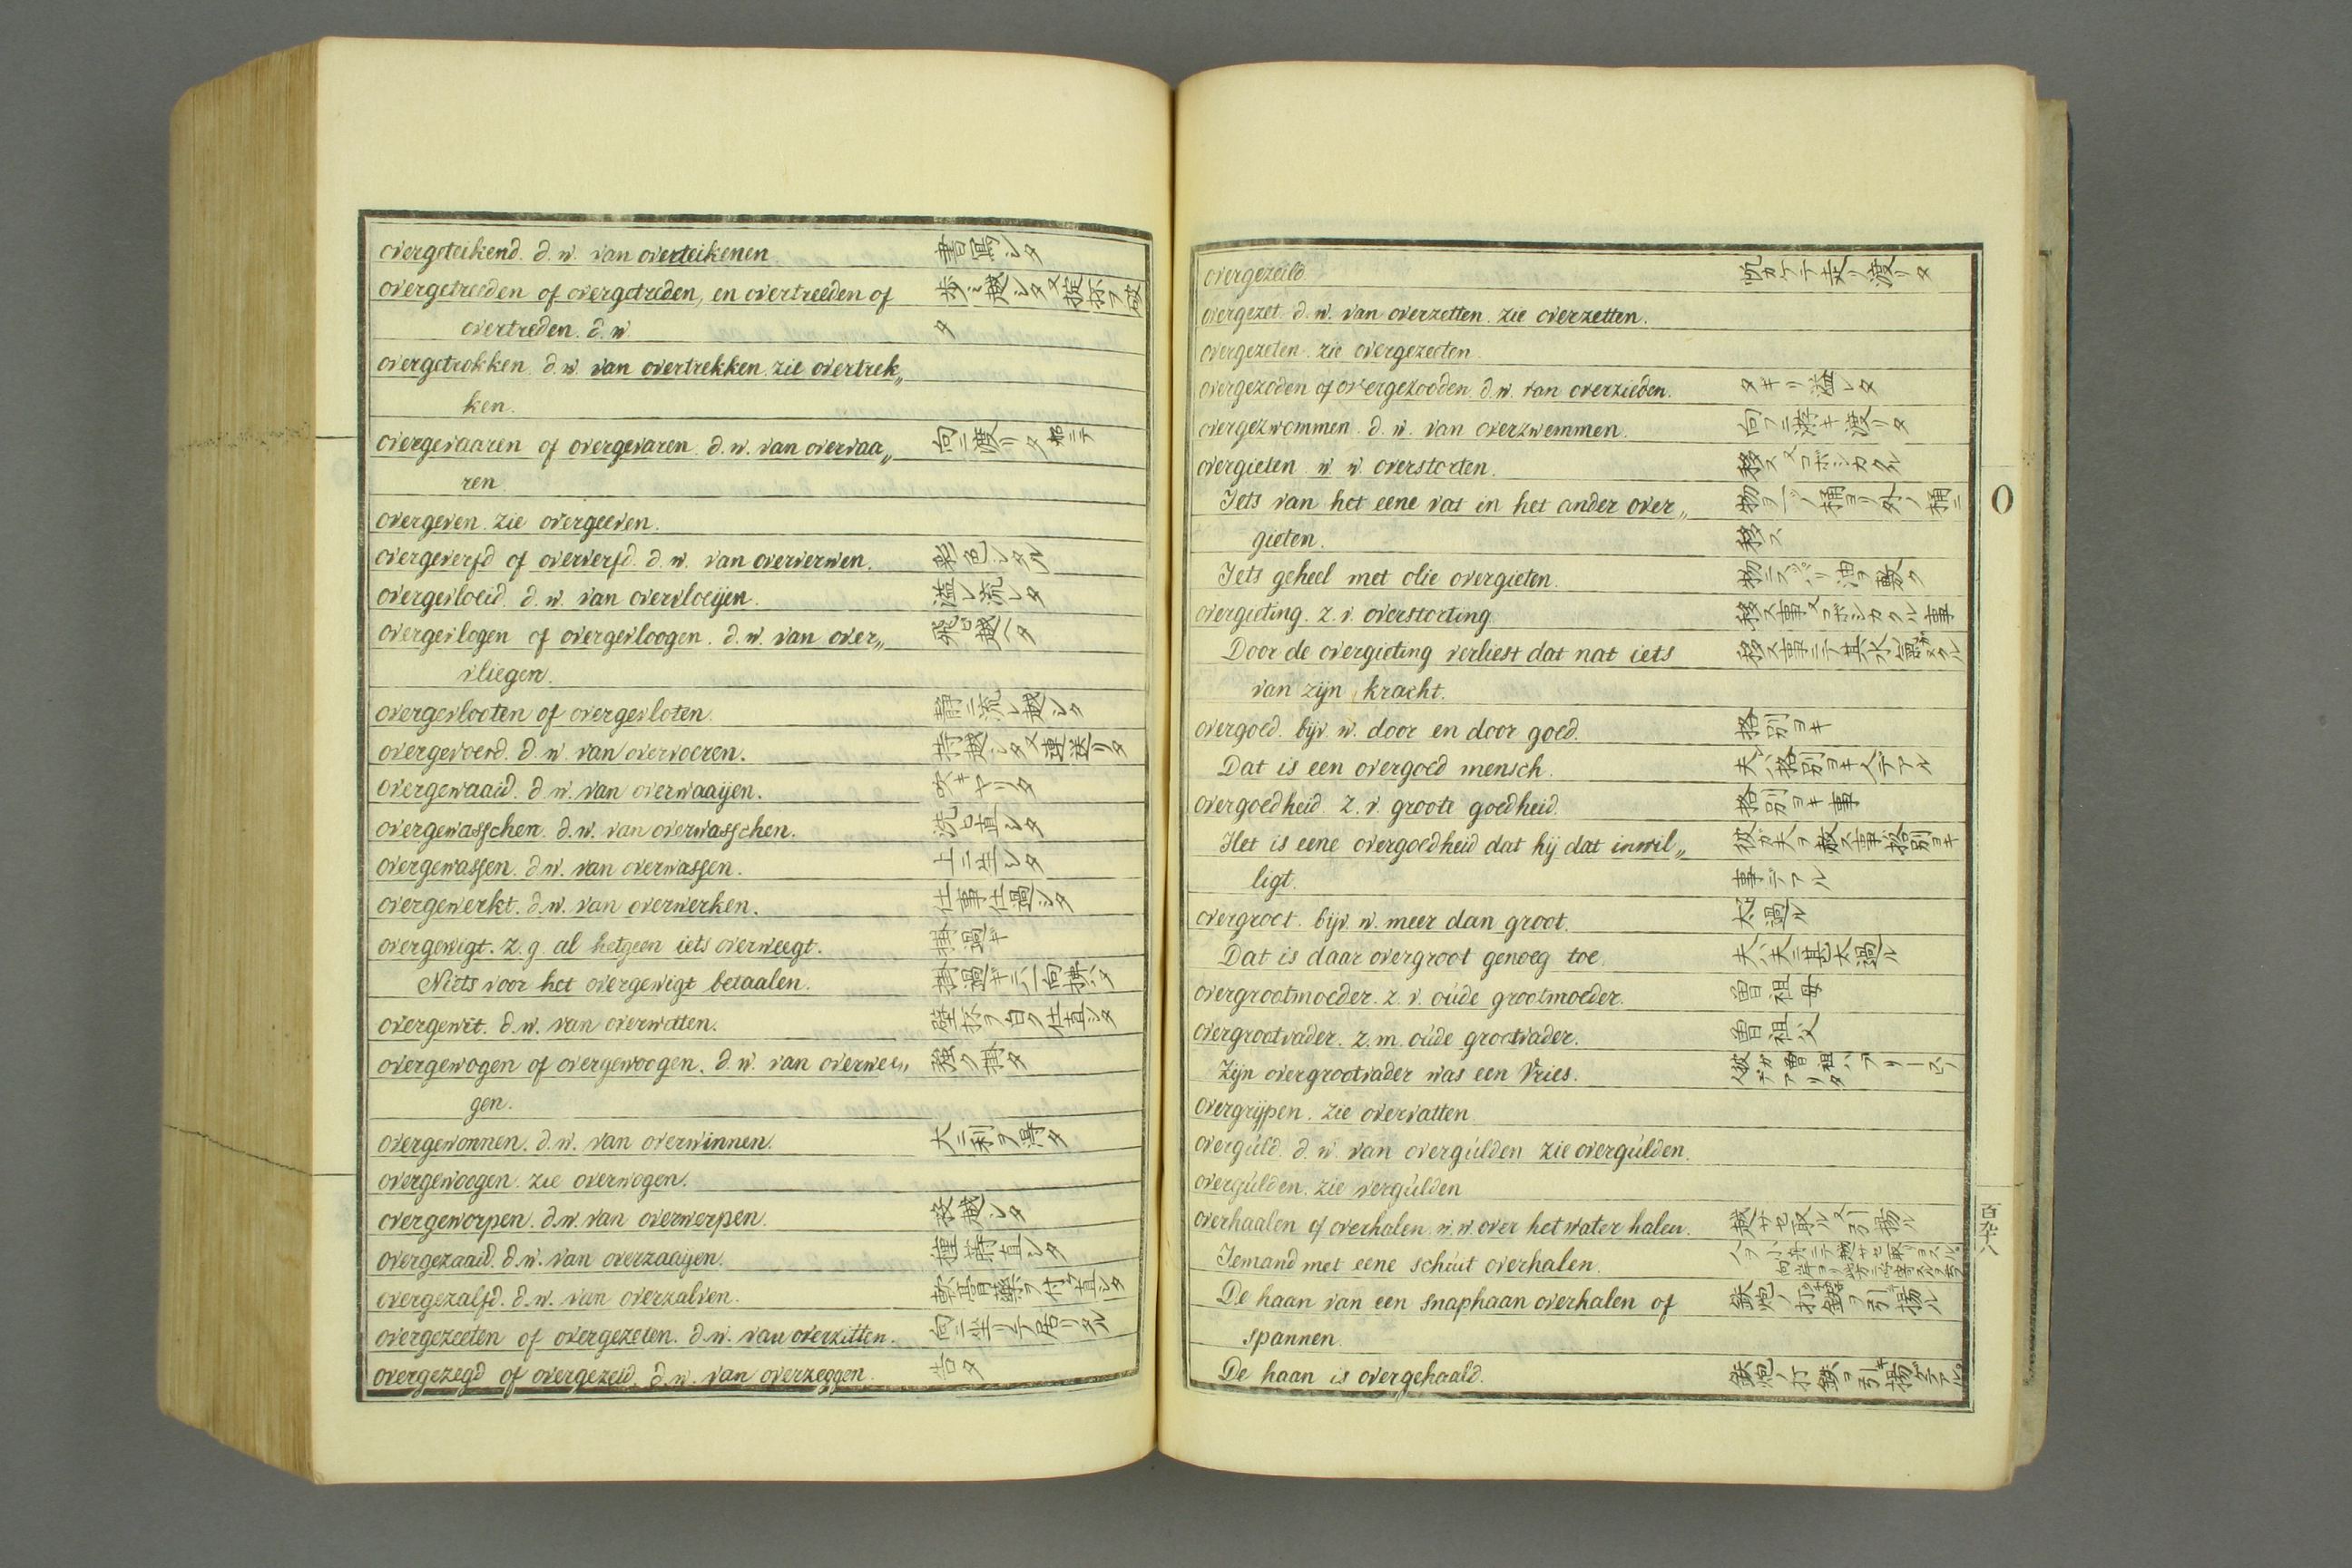 overgeteikend. d. w. van overteikenen 書寫シタ
overgetreeden of overgetreden, en overtreeden of 歩ミ越シタ又掟抔ヲ破
overtreden. d. w. タ
overgetrokken. d. w. van overtrekken. zie overtrek„
ken.
overgevaaren of overgevaren. d. w. van overvaa„ 向ニ渡リタ船ニテ
ren.
overgeven. zie overgeeven.
overgeverfd of oververfd. d. w. van oververwen. 彩色シタル
overgevloeid. d. w. van overvloeijen. 溢レ流レタ
overgevlogen of overgevloogen. d. w. van over„ 飛ヒ越ヘタ
vliegen.
overgevlooten of overgevloten. 静ニ流レ越シタ
overgevoerd. d. w. van overvoeren. 持越シタ又運送リタ
overgewaaid. d. w. van overwaaijen. 吹キヤリタ
overgewasschen. d. w. van overwasschen. 洗ヒ直シタ
overgewassen. d. w. van overwassen. 上ニ生シタ
overgewerkt. d. w. van overwerken. 仕事仕過シタ
overgewigt. z. g. al hetgeen iets overweegt. 掛過キ
Niets voor het overgewigt betaalen. 掛過キニハ一向拂ハタ
overgewit. d. w. van overwitten. 壁抔ヲ白ク仕直シタ
overgewogen of overgewoogen. d. w. van overwee„ 強ク掛タ
gen.
overgewonnen. d. w. van overwinnen. 大ニ利ヲ得タ
overgewoogen. zie overwogen.
overgeworpen. d. w. van overwerpen. 投越シタ
overgezaaid. d. w. van overzaaijen. 種蒔直シタ
overgezalfd. d. w. van overzalven. 軟膏藥ヲ付ケ直シタ
overgezeeten of overgezeten. d. w. van overzitten. 向ニ坐リテ居リタル
overgezegd of overgezeid. d. w. van overzeggen. 告タ
overgezeild. 帆カケテ走リ渡リタ
overgezet. d. w. van overzetten. zie overzetten.
overgezeten. zie overgezeeten.
overgezoden of overgezooden. d. w. van overzieden. タキリ溢レタ
overgezwommen. d. w. van overzwemmen. 向フニ游キ渡リタ
overgieten. w. w. overstorten. 移ス又コボシカクル
Iets van het eene vat in het ander over„ 物ヲ一ツノ桶ヨリ外ノ桶ニ
gieten. 移ス
Iets geheel met olie overgieten. 油ヲ敷ク
overgieting. z. v. overstorting. 移ス事又コボシカクル事
Door de overgieting verliest dat nat iets 移ス事ニテ其水氣
van zijn kracht.
overgoed. bijv. w. door en door goed. 格別ヨキ
Dat is een overgoed mensch. 夫ハ格別ヨキ人デアル
overgoedheid. z. v. groote goedheid. 格別ヨキ事
Het is eene overgoedheid dat hij dat inwil„ 彼ガ夫ヲ赦ス事ハ格別ヨキ
ligt. 事デアル
overgroot. bijv. w. meer dan groot. 太過ル
Dat is daar overgroot genoeg toe. 夫ハ夫ニ甚太過ル
overgrootmoeder. z. v. oúde grootmoeder. 曽祖母
overgrootvader. z. m. oúde grootvader. 曽祖父
Zijn overgrootvader was een Vries. 彼ガ曽祖ハフリースノ人デアリタ
overgrijpen. zie overvatten
overgúld. d. w. van overgúlden zie overgúlden.
overgúlden. zie vergúlden
overhaalen of overhalen. w. w. over het water halen. 越サセ取ル又引揚ル
Iemand met eene schúit overhalen. 人ヲ小舟ニテ越サセ取
De haan van een snaphaan overhalen of 鉄炮ノ打鉄ヲ引揚ル
spannen.
De haan is overgehaald. 鉄炮ノ打鉄ヲ引キ揚ゲテアル
O